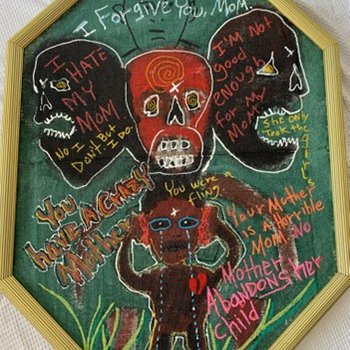 I Forgive You, Mom.
I
HATE
MY
MOM
No I
Don't. But
I Do.
I'm Not
good
enough
for my
Mom
She only
Took the
girls
You
have A Crazy
Mother
You were a
fling.
Your Mother
is a Horrible
Mom NO
Mother
Abandons Her
child